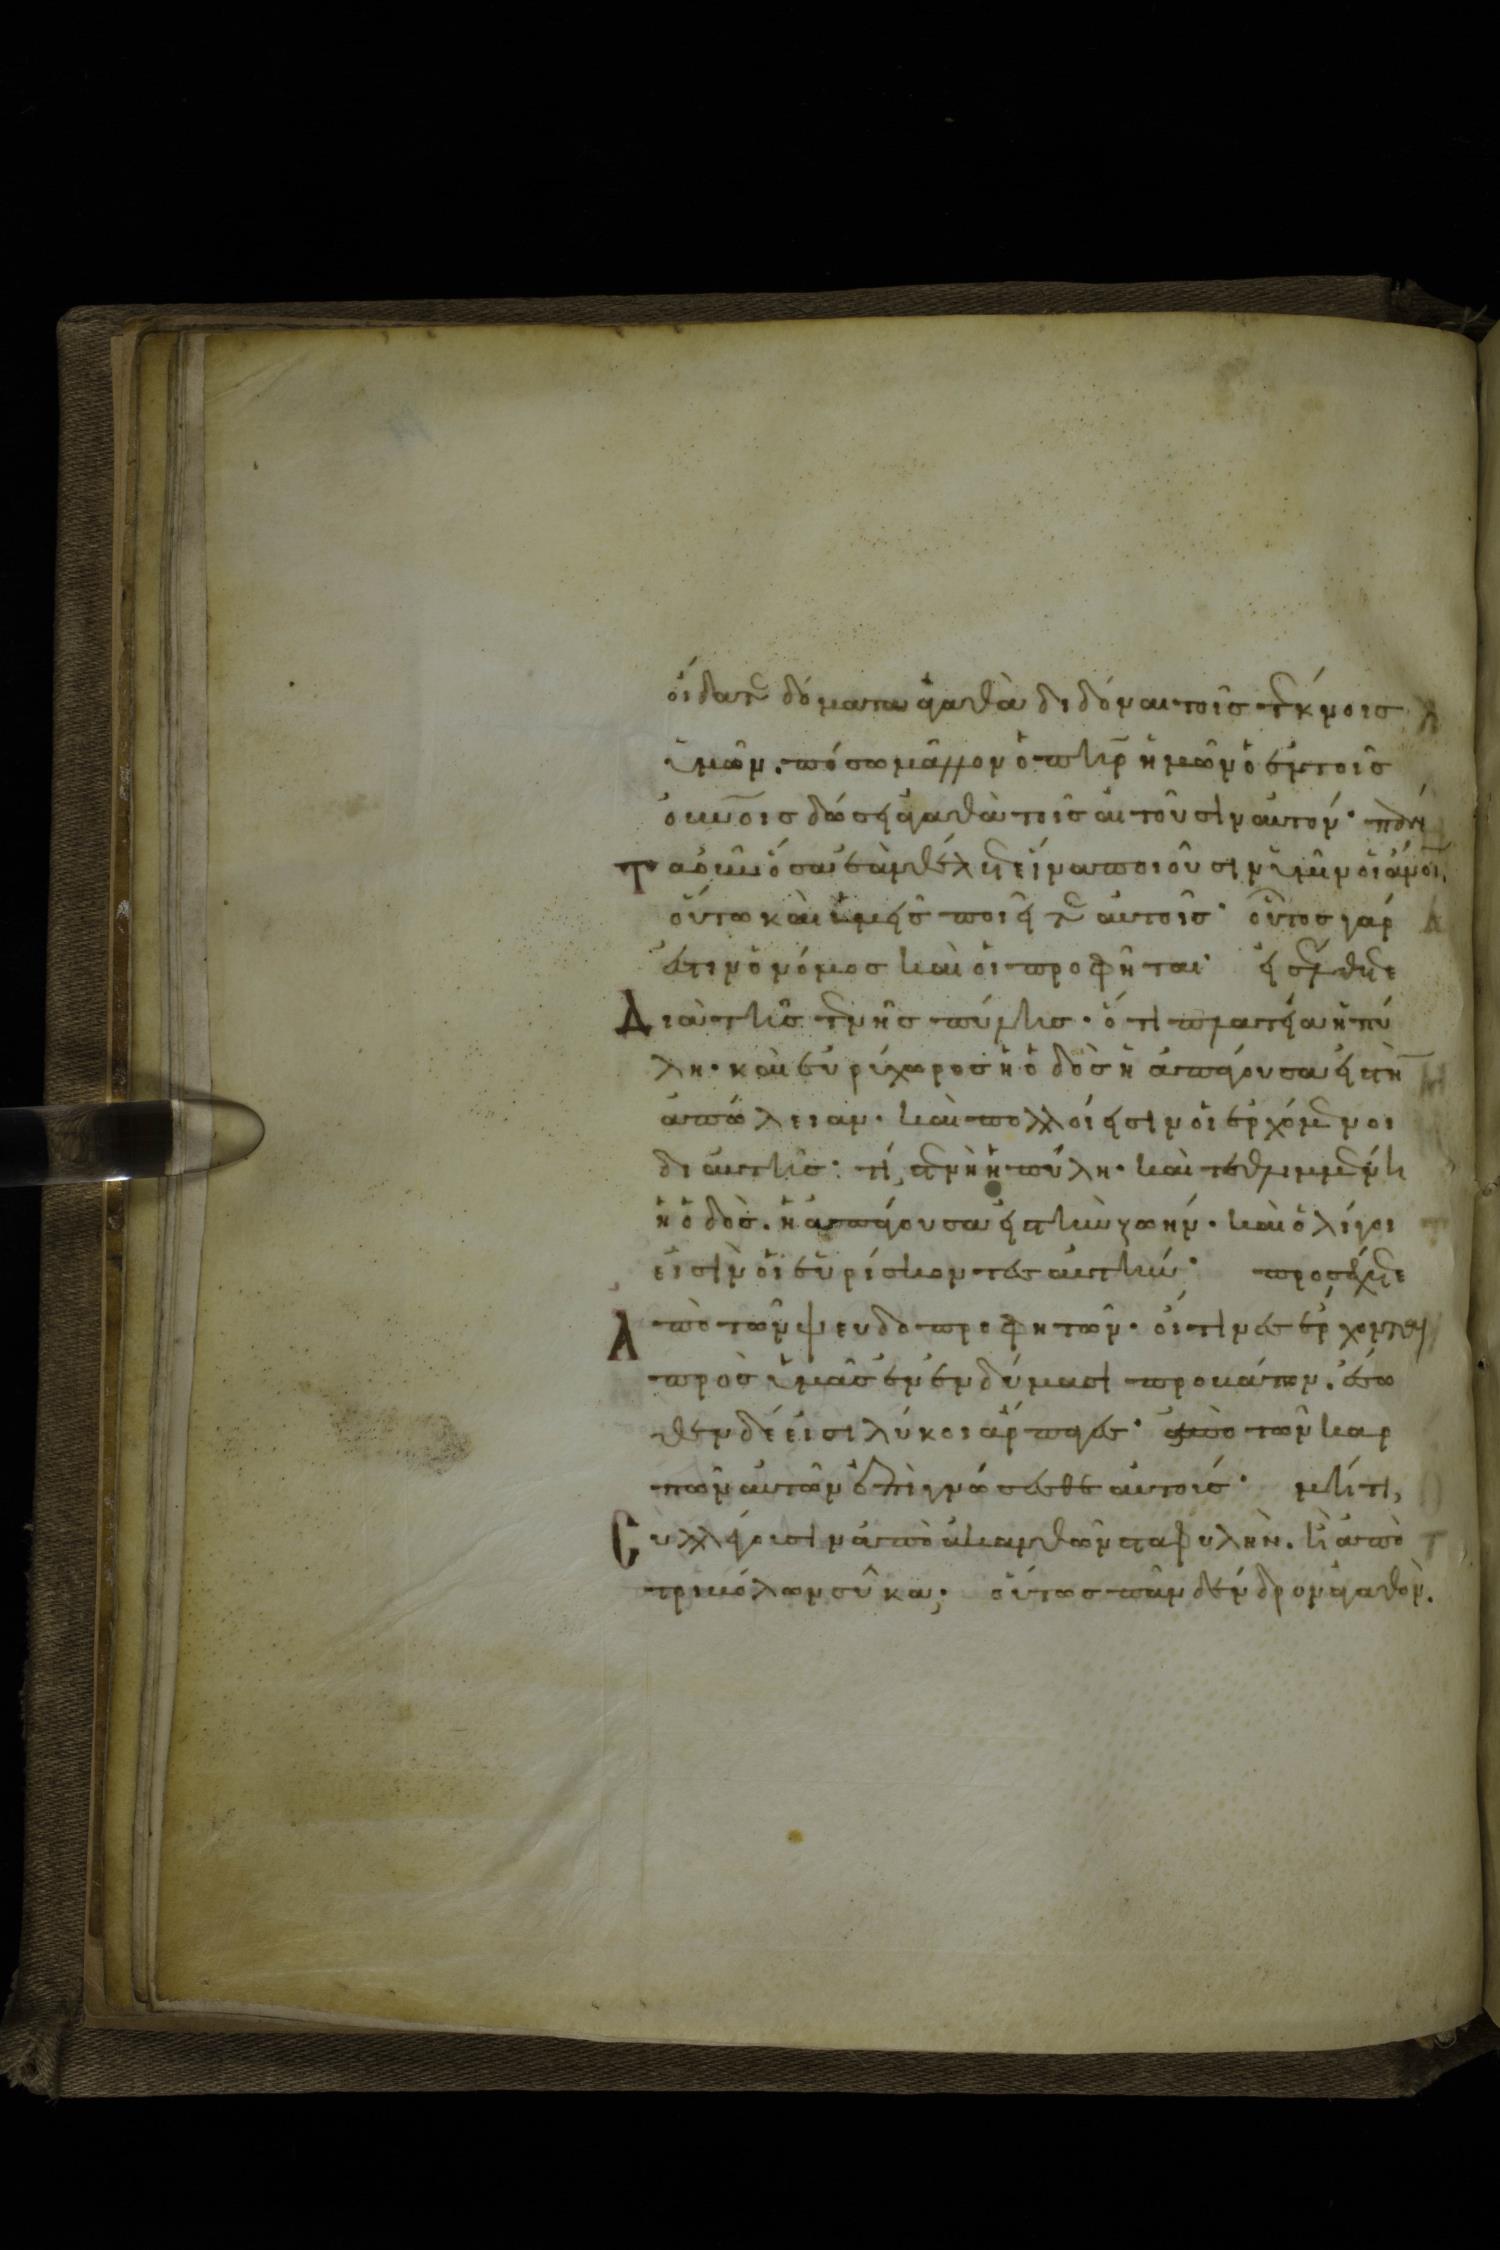 οἴδατε δόματα ἀγαθὰ διδόναι τοῖς τέκνοις
ὑμῶν. πόσω μᾶλλον ὁ πηρ ἡμῶν ὁ ἐν τοῖς
οὐνοις δώσει ἀγαθὰ τοῖς αἰτοῦσιν αὐτόν· πάν
τα οὖν ὅσα ἐὰν θέλητε ἵνα ποιοῦσιν ὑμῖν οἱ ἄνοι,
οὕτω καὶ ὑμεῖς ποιεῖτε αὐτοῖς· οὗτος γάρ
ἐστιν ὁ νόμος καὶ οἱ προφῆται· εἰσέλθετε
Διὰ τῆς στενῆς πύλης· ὅτι πλατεῖα ἡ πύ
λη· καὶ εὐρύχωρος ἡ ὁδὸς ἡ ἀπάγουσα εἰς τὴ
ἀπώλειαν· καὶ πολλοί εἰσιν οἱ ἐρχόμενοι
δι αὐτῆς· τί στενὴ ἡ πύλη· καὶ τεθλιμμένη
ἡ ὁδὸς. ἡ ἀπάγουσα εἰς τὴν ζωήν· καὶ ὀλίγοι
εἰσὶν οἱ εὑρίσκοντες αὐτήν· προσέχετε
Ἀπὸ τῶν ψευδοπροφητῶν· οἵτινες ἔρχονται
πρὸς ὑμᾶς ἐν ἐνδύμασι προβάτων. ἔσω
θεν δέ εἰσι λύκοι ἅρπαγες· ἀπὸ τῶν καρ
πῶν αὐτῶν ἐπιγνώσεσθε αὐτούς· μήτι,
Συλλέγουσιν ἀπὸ ἀκανθῶν σταφυλὴν. ἢ ἀπὸ
τριβόλων σῦκα; οὕτως πᾶν δένδρον ἀγαθὸν.